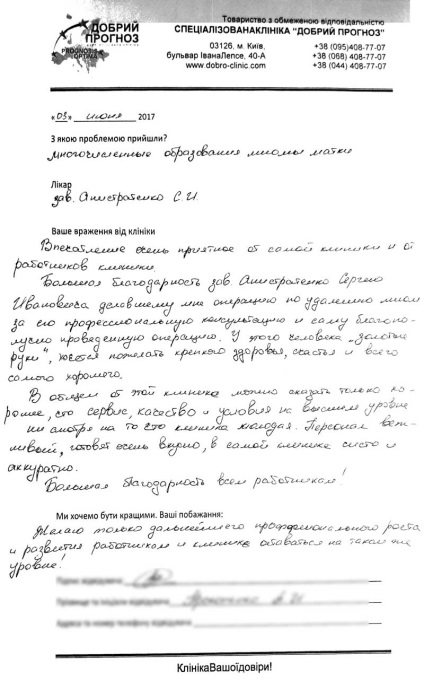 ДОБРИЙ
ПРОГНОЗ
PROGNOSIS
OPTIMA
Товариство з обмеженою відповідальністю
СПЕЦІАЛІЗОВАНАКЛІНІКА "ДОБРИЙ ПРОГНОЗ"
03126, м. Київ, +38 (095)408-77-07
бульвар ІванаЛепсе, 40-А +38 (068) 408-77-07
www.dobro-clinic.com +38 (044) 408-77-07
«03» июня 2017
З якою проблемою прийшли?
многочисленные образования миомы матки
Лікар
зав. Анистратенко С.И.
Ваше враження від клініки
Впечатление очень приятное от самой клиники и от
работников клиники.
Большая благодарность зав. Анистратенко Сергею
Ивановичу делавшему мне операцию по удалению миом
за его профессиональную консультацию и саму благопо-
лучно проведенную операцию. У этого человека „золотые
руки", хочется пожелать крепкого здоровья, счастья и всего
самого хорошего.
В общем от этой клиники можно сказать только хо-
рошее, что сервис, качество и условия на высшем уровне
ни смотря на то что клиника молодая. Персонал веж-
ливый, готовят очень вкусно, в самой клинике чисто и
аккуратно.
Большая благодарность всем работникам!
Ми хочемо бути кращими. Ваші побажання:
Желаю только дальнейшего профессионального роста
и развития работникам и клинике оставаться на таком же
уровне!
КлінікаВашоїдовіри!